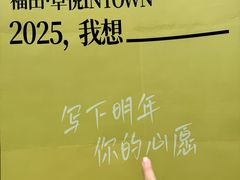 福田·卓悦INTOWN
2025，我想
写下明年
你的心愿